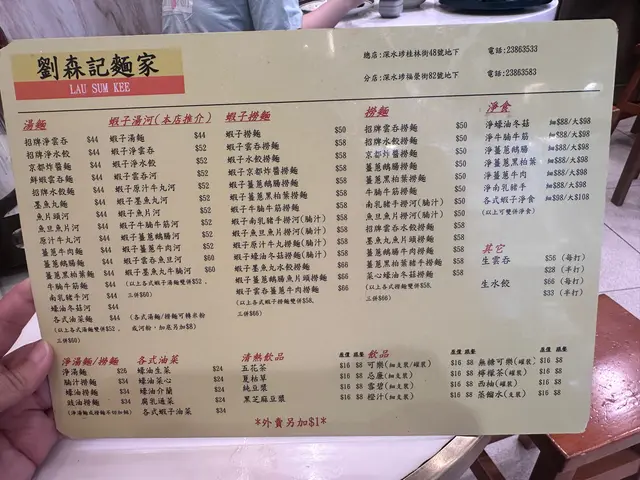 劉森記麵家
LAU SUM KEE
總店:深水埗桂林街48號地下 電話:23863533
分店:深水埗福榮街82號地下 電話:23863583
湯麵
招牌淨雲吞 $44
招牌淨水餃 $44
京都炸醬麵 $44
鮮蝦雲吞麵 $44
招牌水餃麵 $44
墨魚丸麵 $44
魚片頭河 $44
魚旦魚片河 $44
原汁牛丸河 $44
薑蔥牛肉麵 $44
薑蔥鵝腸麵 $44
薑蔥黑柏葉麵 $44
牛腩牛筋麵 $44
南乳豬手河 $44
蠔油冬菇河 $44
各式油菜麵 $44
(以上各式湯麵雙併$52，
三併$60)
蝦子湯河(本店推介)
蝦子湯麵 $44
蝦子淨雲吞 $52
蝦子淨水餃 $52
蝦子雲吞河 $52
蝦子原汁牛丸河 $52
蝦子墨魚丸河 $52
蝦子魚片河 $52
蝦子牛腩牛筋河 $52
蝦子薑蔥鵝腸河 $52
蝦子薑蔥牛肉河 $52
蝦子雲吞魚旦河 $60
蝦子墨魚丸牛腩河 $60
(以上各式蝦子湯麵雙併$52，
三併$60)
(各式湯麵/蝦子湯麵可轉米粉
或河粉，如底另加$8)
蝦子撈麵
蝦子撈麵 $50
蝦子雲吞撈麵 $58
蝦子水餃撈麵 $58
蝦子京都炸醬撈麵 $58
蝦子薑蔥鵝腸撈麵 $58
蝦子薑蔥黑柏葉撈麵 $58
蝦子牛腩牛筋撈麵 $58
蝦子南乳豬手撈河(腩汁) $58
蝦子魚旦魚片撈河(腩汁) $58
蝦子原汁牛丸撈河(腩汁) $58
蝦子蠔油冬菇撈麵(腩汁) $58
蝦子墨魚丸水餃撈麵 $66
蝦子薑蔥鵝腸魚片頭撈麵 $66
蝦子雲吞薑蔥牛肉撈麵 $66
(以上各式蝦子撈麵雙併$58，
三併$66)
撈麵
招牌雲吞撈麵 $50
招牌水餃撈麵 $50
京都炸醬撈麵 $50
薑蔥鵝腸撈麵 $50
薑蔥黑柏葉撈麵 $50
牛腩牛筋撈麵 $50
南乳豬手撈河(腩汁) $50
魚旦魚片撈河(腩汁) $50
招牌雲吞水餃撈麵 $58
墨魚丸魚片頭撈麵 $58
薑蔥牛肉鵝腸撈麵 $58
薑蔥黑柏葉豬手撈麵 $58
菜心蠔油冬菇撈麵 $58
(以上各式撈麵雙併$58，
三併$66)
淨食
淨蠔油冬菇 細$88/大$98
淨牛腩牛筋 細$88/大$98
淨薑蔥鵝腸 細$88/大$98
淨薑蔥黑柏葉 細$88/大$98
淨薑蔥牛肉 細$88/大$98
淨南乳豬手 細$88/大$98
各式蝦子淨食 細$98/大$108
(以上可雙併淨食)
其它
生雲吞 $56 (每打)
$28 (半打)
生水餃 $66 (每打)
$33 (半打)
淨湯麵/撈麵
淨湯麵 $26
腩汁撈麵 $34
蠔油撈麵 $34
豉油撈麵 $34
各式油菜
蠔油生菜 $24
蠔油菜心 $24
蠔油介蘭 $24
腐乳通菜 $24
各式蝦子油菜 $34
清熱飲品 座價 跟餐
五花茶 $16 $8
夏枯草 $16 $8
純豆漿 $16 $8
黑芝麻豆漿 $16 $8
飲品 座價 跟餐
可樂(細支裝)(罐裝) $16 $8
忌廉(細支裝) $16 $8
雪碧(細支裝) $16 $8
橙汁(細支裝) $16 $8
座價 跟餐
無糖可樂(罐裝) $16 $8
檸檬茶(罐裝) $16 $8
西柚(罐裝) $16 $8
蒸餾水(支裝) $16 $8
*外賣另加$1*